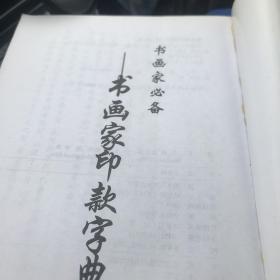 书画家必备
—书画家印款字典